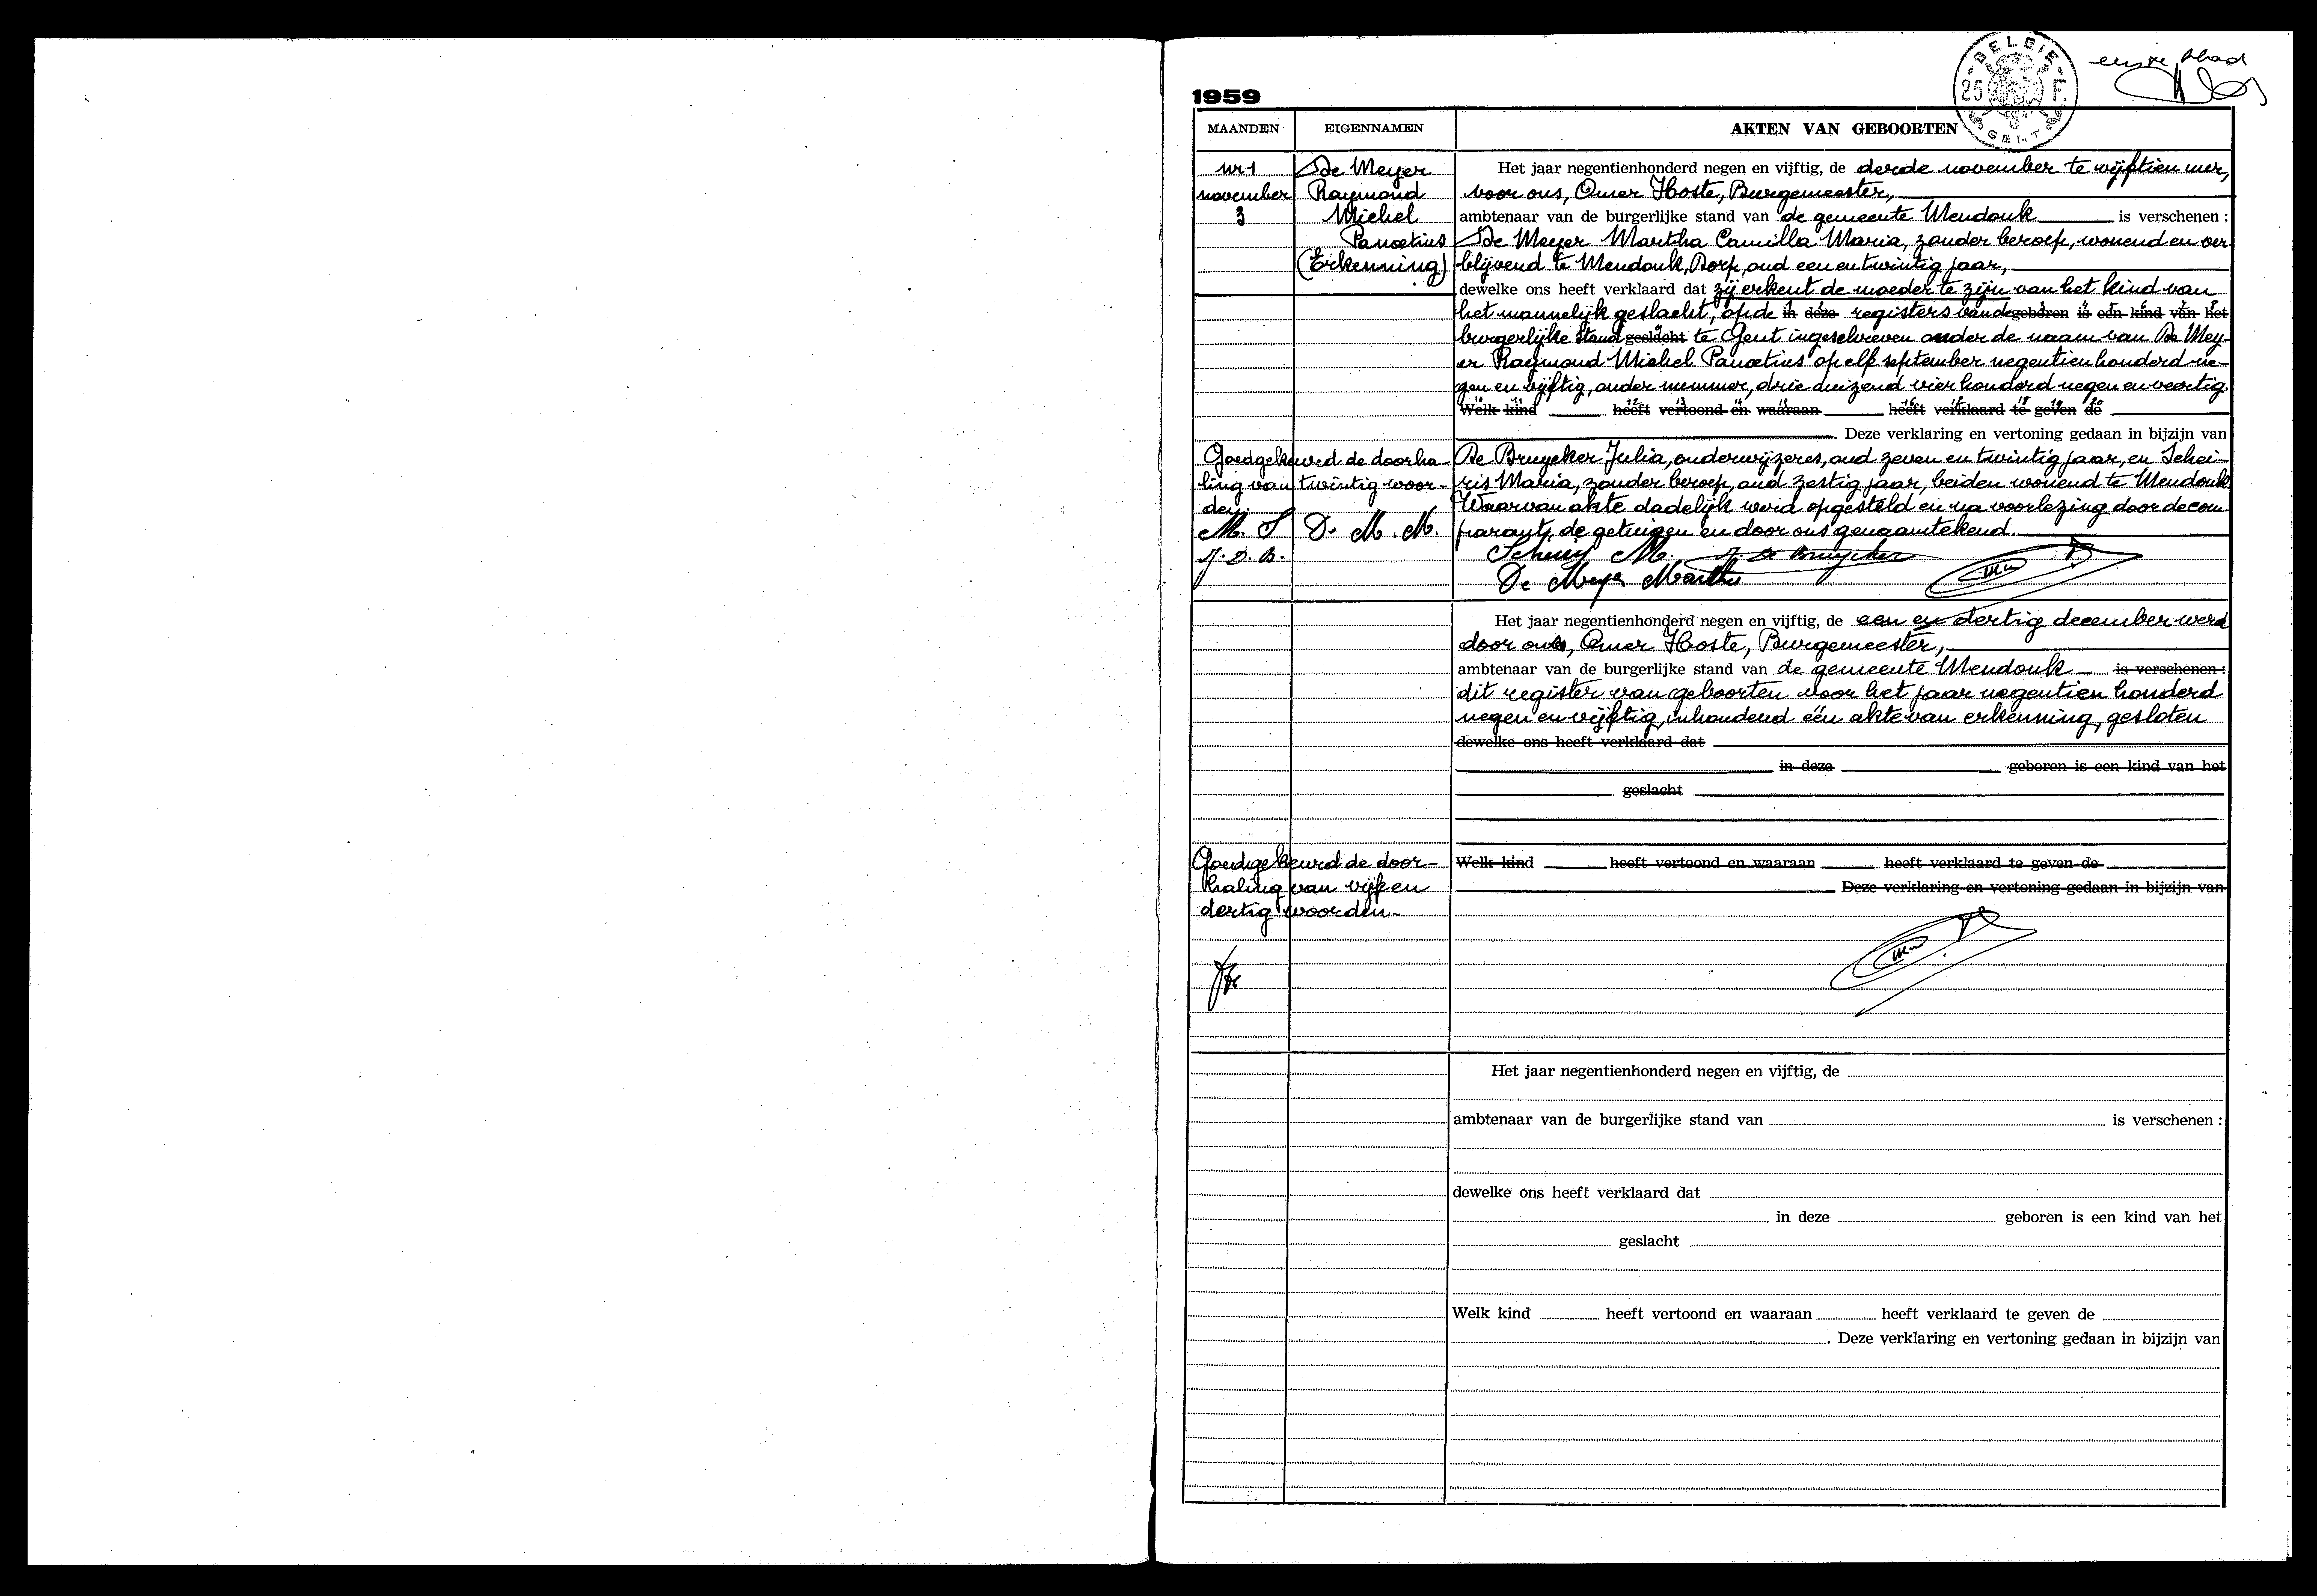 BELGIE
25 F.
GENT
eerste blad
1959
MAANDEN EIGENNAMEN AKTEN VAN GEBOORTEN
nr 1
november
3
De Meyer
Raymond
Michel
Panoetius
(Erkenning)
Het jaar negentienhonderd negen en vijftig, de derde november te vijftien uur,
voor ons, Omer Hoste, Burgemeester,
ambtenaar van de burgerlijke stand van de gemeente Mendonk is verschenen :
De Meyer Martha Camilla Maria, zonder beroep, wonend en ver
blijvend te Mendonk, Dorp, oud een en twintig jaar,
dewelke ons heeft verklaard dat zij erkent de moeder te zijn van het kind van
het mannelijk geslacht, op de in deze registers van de geboren is een kind van het
burgerlijke stand geslacht te Gent ingeschreven onder de naam van De Mey-
er Raymond Michel Panoetius op elf september negentien honderd ne-
gen en vijftig, onder nummer, drie duizend vier honderd negen en veertig.
Welk kind heeft vertoond en waaraan heeft verklaard te geven de
. Deze verklaring en vertoning gedaan in bijzijn van
De Bruycker Julia, onderwijzeres, oud zeven en twintig jaar, en Schei-
ris Maria, zonder beroep, oud zestig jaar, beiden wonend te Mendonk
Waarvan akte dadelijk werd opgesteld en na voorlezing door de com
parante, de getuigen en door ons genaamtekend.
Goedgekeurd de doorha-
ling van twintig woor-
den.
M. S D. M. M.
J. D. B.
M. J. De Bruycker
De Meyer Martha
Het jaar negentienhonderd negen en vijftig, de een en dertig december werd
door ons, Omer Hoste, Burgemeester,
ambtenaar van de burgerlijke stand van de gemeente Mendonk is verschenen :
dit register van geboorten voor het jaar negentien honderd
negen en vijftig, inhoudend één akte van erkenning, gesloten
dewelke ons heeft verklaard dat
in deze geboren is een kind van het
geslacht
Goedgekeurd de door-
haling van vijf en
dertig woorden.
Welk kind heeft vertoond en waaraan heeft verklaard te geven de
Deze verklaring en vertoning gedaan in bijzijn van
Het jaar negentienhonderd negen en vijftig, de
ambtenaar van de burgerlijke stand van is verschenen :
dewelke ons heeft verklaard dat
in deze geboren is een kind van het
geslacht
Welk kind heeft vertoond en waaraan heeft verklaard te geven de
. Deze verklaring en vertoning gedaan in bijzijn van